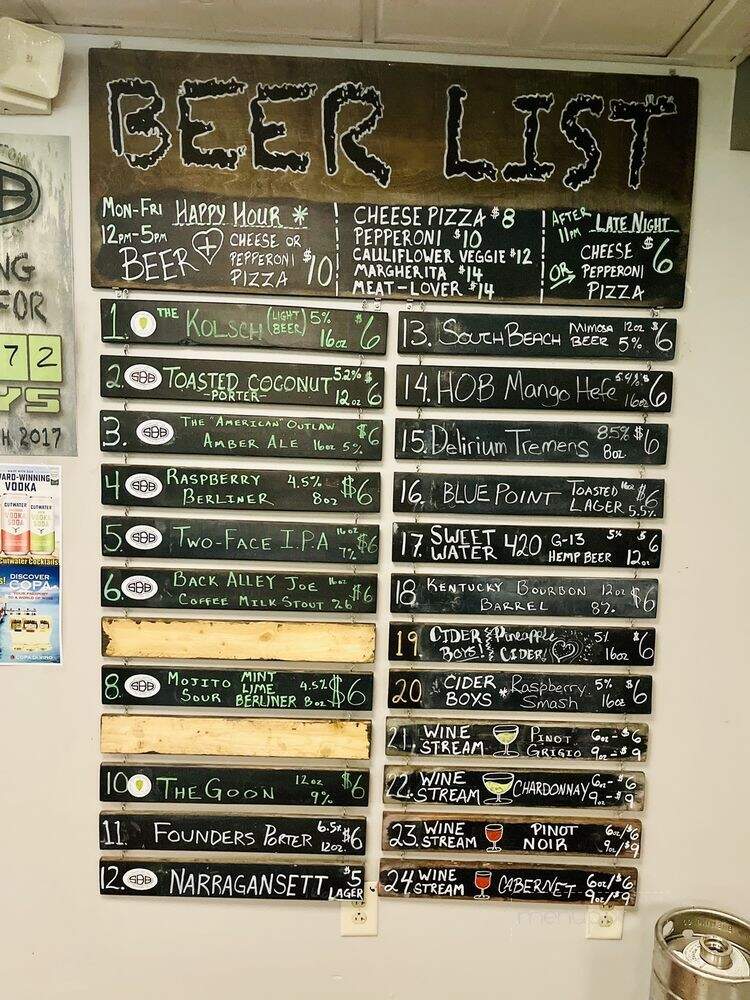 BEER LIST
MON-FRI HAPPY HOUR *
12PM-5PM
BEER + CHEESE OR PEPPERONI PIZZA $10
CHEESE PIZZA $8
PEPPERONI $10
CAULLIFLOWER VEGGIE $12
MARGHERITA $14
MEAT-LOVER $14
AFTER 11PM LATE NIGHT
CHEESE $6
OR PEPPERONI
PIZZA
1. THE KOLSCH (LIGHT BEER) 5% 16oz $6
2. SBB TOASTED COCONUT -PORTER- 5.2% 12oz $6
3. SBB THE "AMERICAN" OUTLAW AMBER ALE 16oz 5% $6
4. SBB RASPBERRY BERLINER 4.5% 8oz $6
5. SBB TWO-FACE I.P.A 16oz 7% $6
6. SBB BACK ALLEY JOE COFFEE MILK STOUT 16oz $6
8. SBB MOJITO SOUR MINT LIME BERLINER 4.5% 8oz $6
10. THE GOON 12oz 9% $6
11. FOUNDERS PORTER 6.5% 12oz. $6
12. SBB NARRAGANSETT LAGER $5
13. SOUTH BEACH MIMOSA BEER 12oz 5% $6
14. HOB Mango Hefe 5.4% 16oz $6
15. Delirium Tremens 8.5% 8oz $6
16. BLUE POINT TOASTED LAGER 16oz 5.5% $6
17. SWEET WATER 420 G-13 HEMP BEER 5% 12oz $6
18. KENTUCKY BOURBON BARREL 12oz 8% $6
19. CIDER BOYS! Pineapple CIDER! 5% 16oz $6
20. CIDER BOYS * Raspberry Smash 5% 16oz $6
21. WINE STREAM PINOT GRIGIO 6oz-$6 9oz-$9
22. WINE STREAM CHARDONNAY 6oz-$6 9oz-$9
23. WINE STREAM PINOT NOIR 6oz/$6 9oz/$9
24. WINE STREAM CABERNET 6oz/$6 9oz/$9
NG
FOR
7 2
YS
H 2017
WARD-WINNING
VODKA
CUTWATER CUTWATER
VODKA SODA VODKA SODA
Cutwater Cocktails
DISCOVER
COPA